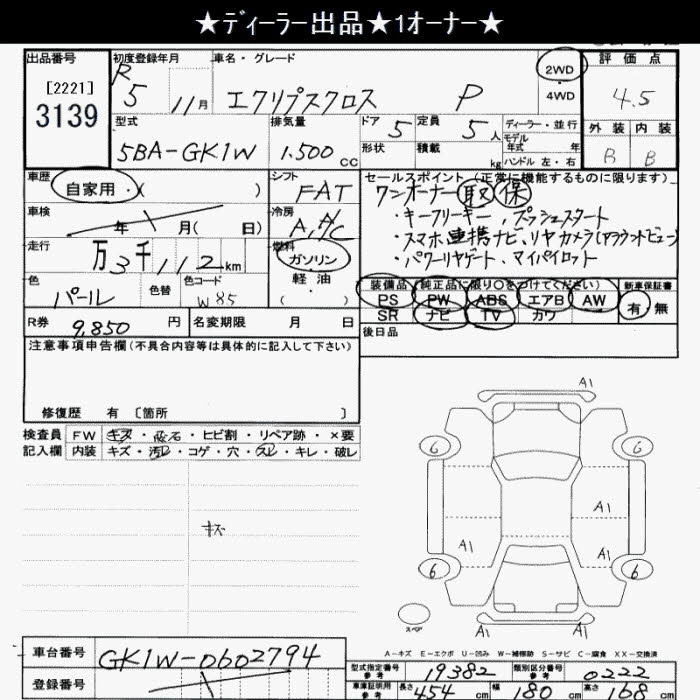 ★ディーラー出品★1オーナー★
出品番号 初度登録年月 車名・グレード 2WD 評価点
[2221] R 5 11月 エクリプスクロス P 4WD 4.5
3139
型式 排気量 ドア 5 定員 5人 ディーラー・並行 外装 内装
5BA-GK1W 1.500cc 形状 積載 kg モデル年式 年 B B
ハンドル 左・右
車歴 シフト セールスポイント (正常に機能するものに限ります)
自家用・( ) FAT ワンオーナー 取 保
車検 冷房 ・キーフリーキー、プッシュスタート
年 月( 日) A A/C ・スマホ連携ナビ、リヤカメラ(アラウンドビュー)
走行 燃料 ・パワーリヤゲート、マイパイロット
万3千112km ガソリン
色 色替 色コード 軽油 装備品 (純正品に限り○をつけてください) 新車保証書
パール W85 ( ) PS PW ABS エアB AW 有 無
R券 9,850円 名変期限 月 日 SR ナビ TV カワ
後日品
注意事項申告欄(不具合内容等は具体的に記入して下さい)
修復歴 有 〔箇所 〕
検査員 FW キズ・飛石・ヒビ割・リペア跡・×要
記入欄 内装 キズ・汚れ・コゲ・穴・スレ・キレ・破レ
キズ
A1
6 6
A1
A1 A1
6 6
スペア
A1
A-キズ E-エクボ U-凹み W-補修跡 S-サビ C-腐食 XX-交換済
車台番号 GK1W-0602794
登録番号
型式指定番号 参考 19382 類別区分番号 参考 0222
車庫証明用 参考 長さ 454cm 幅 180cm 高さ 168cm